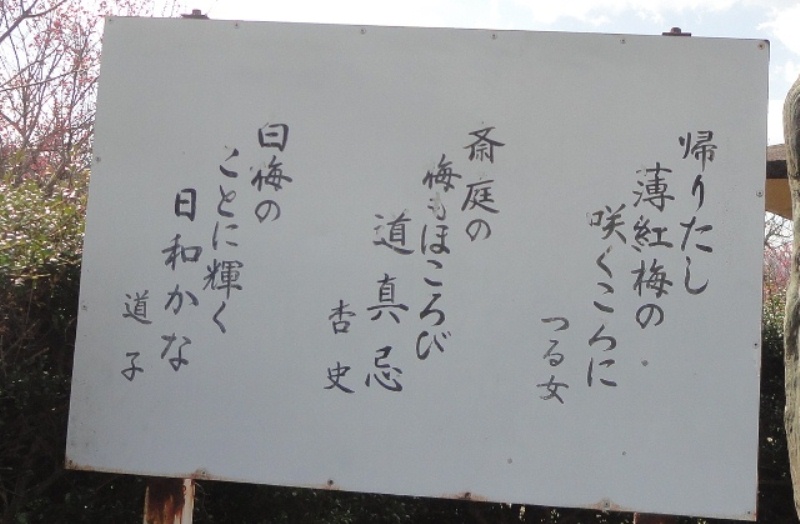 帰りたし
薄紅梅の
咲くころに
つる女
斎庭の
梅もほころび
道真忌
杏史
白梅の
ことに輝く
日和かな
道子